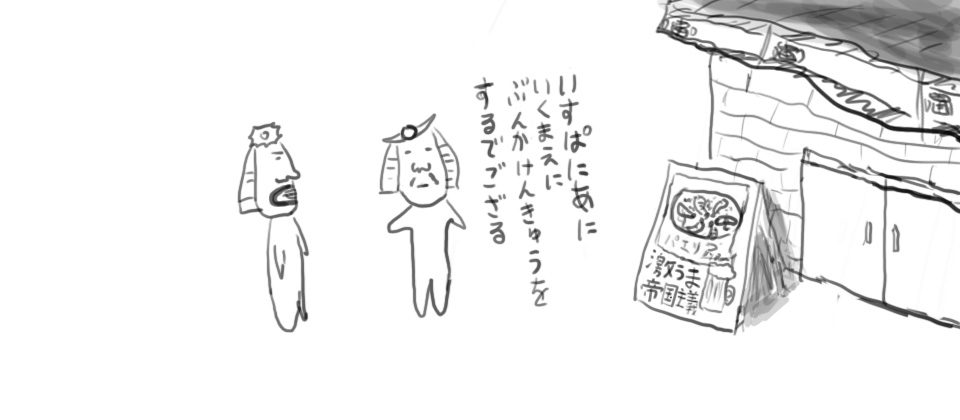 いすぱにあに
いくまえに
ぶんかけんきゅうを
するでござる
パエリア
激うま
帝国主義